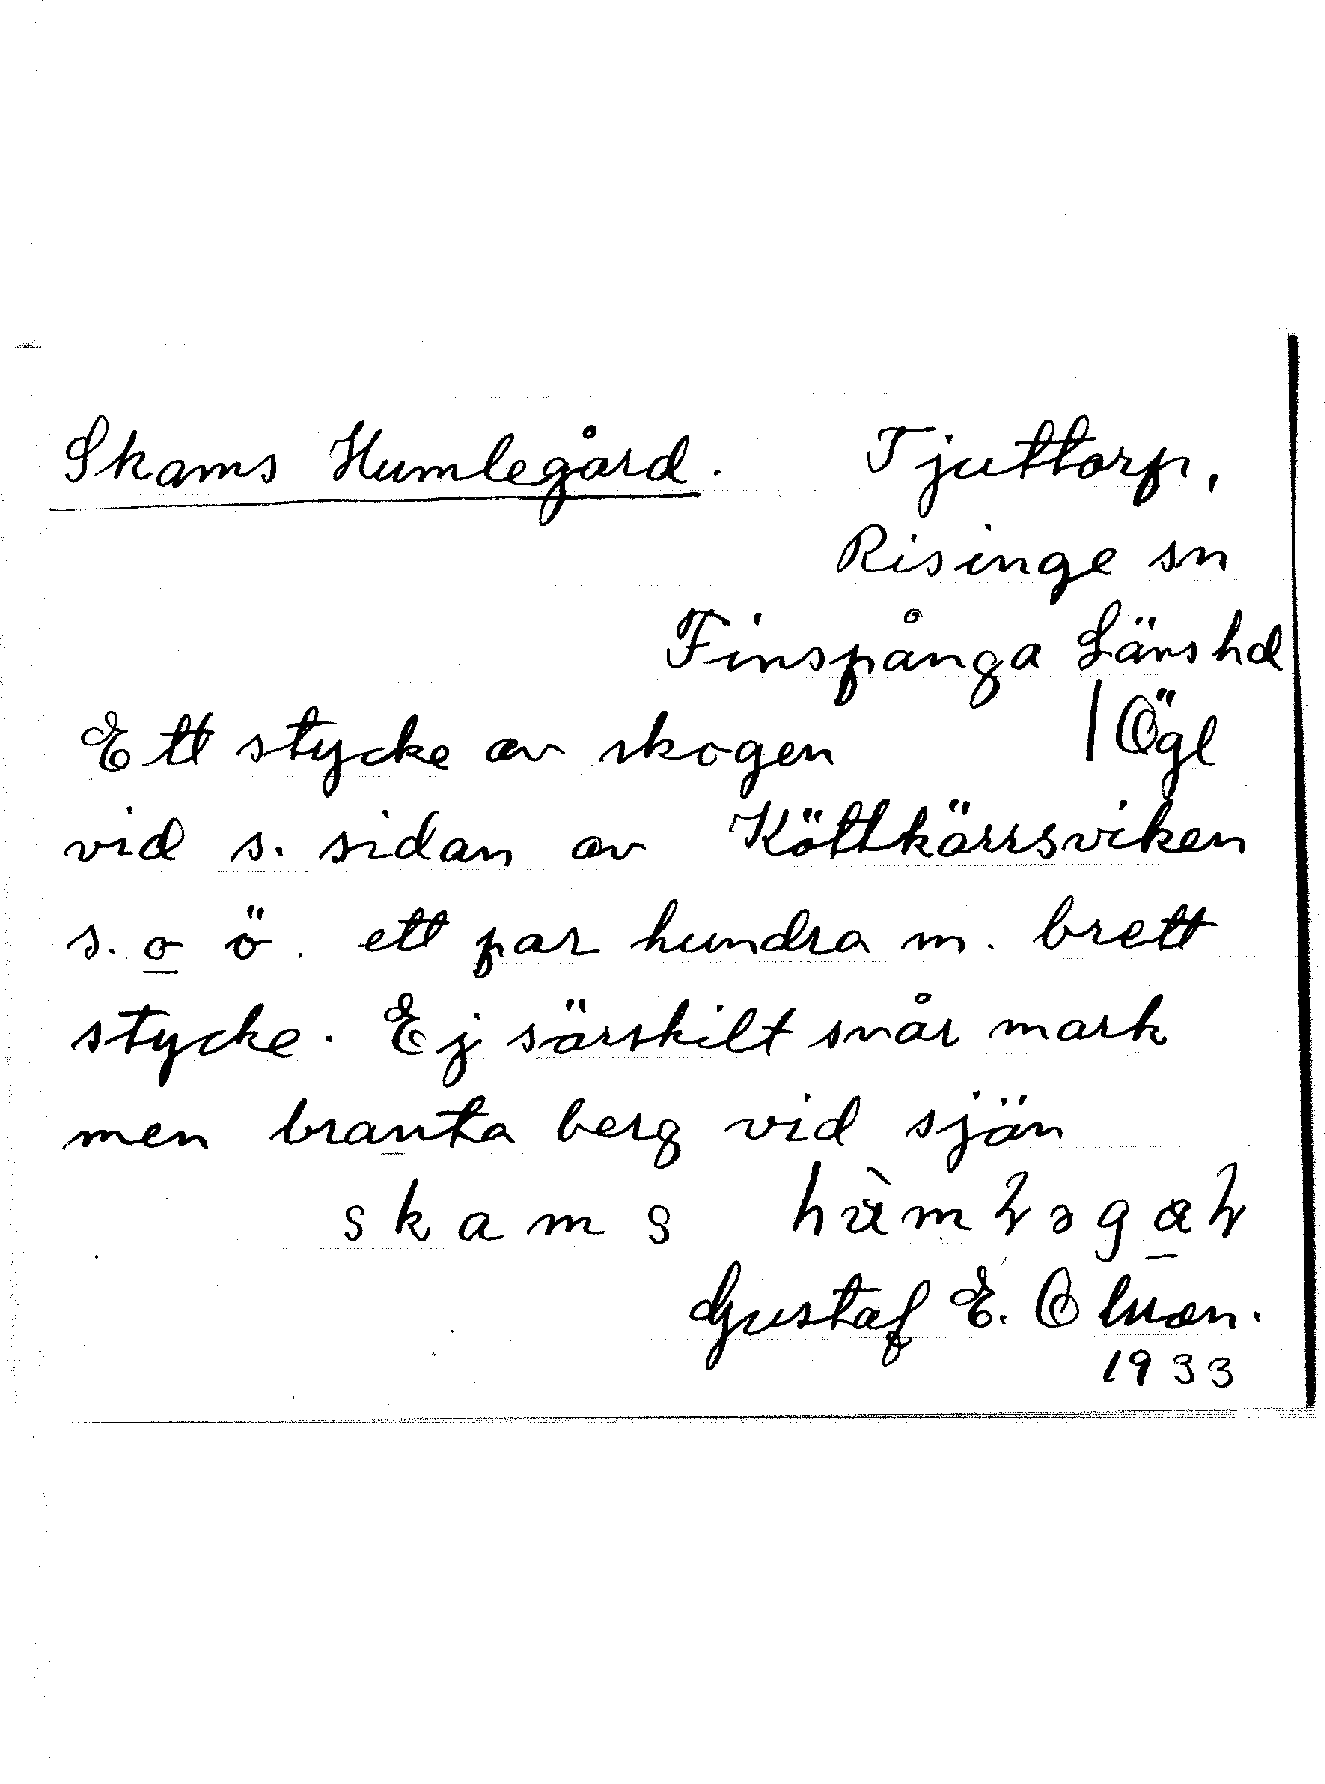 Skams Humlegård. Tjuttorp,
Risinge sn
Finspånga Länshd
Ett stycke av skogen | Ögl
vid s. sidan av Köttkärrsviken
s. o ö. ett par hundra m. brett
stycke. Ej särskilt svår mark
men branta berg vid sjön
skams
Gustaf E.
1933